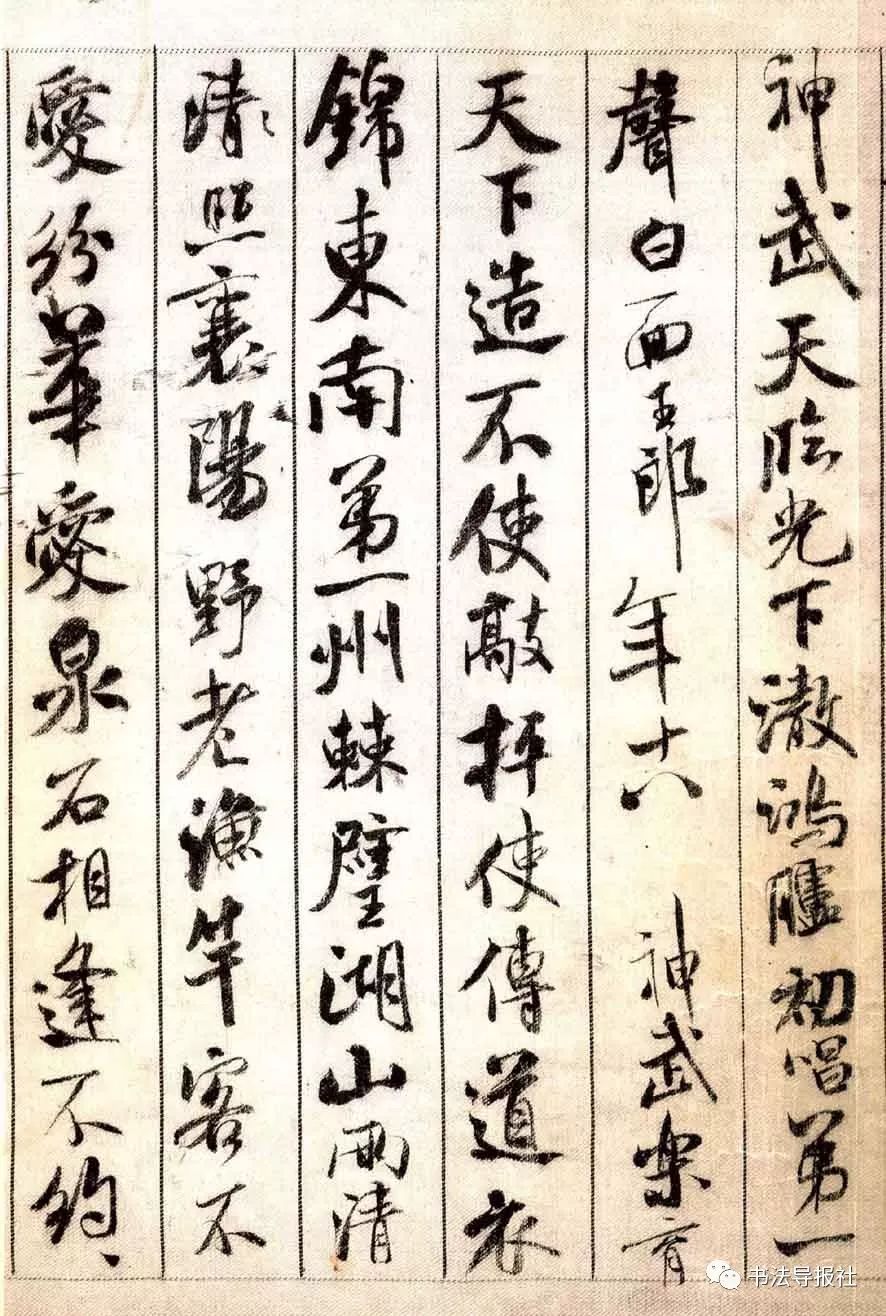 神武天臨光下澈鴻臚初唱第一
聲白面王郎年十八 神武樂育
天下造不使敲抨使傳道衣
錦東南第一州棘璧湖山兩清
清照襄陽野老漁竿客不
愛紛華愛泉石相逢不約〻
书法导报社